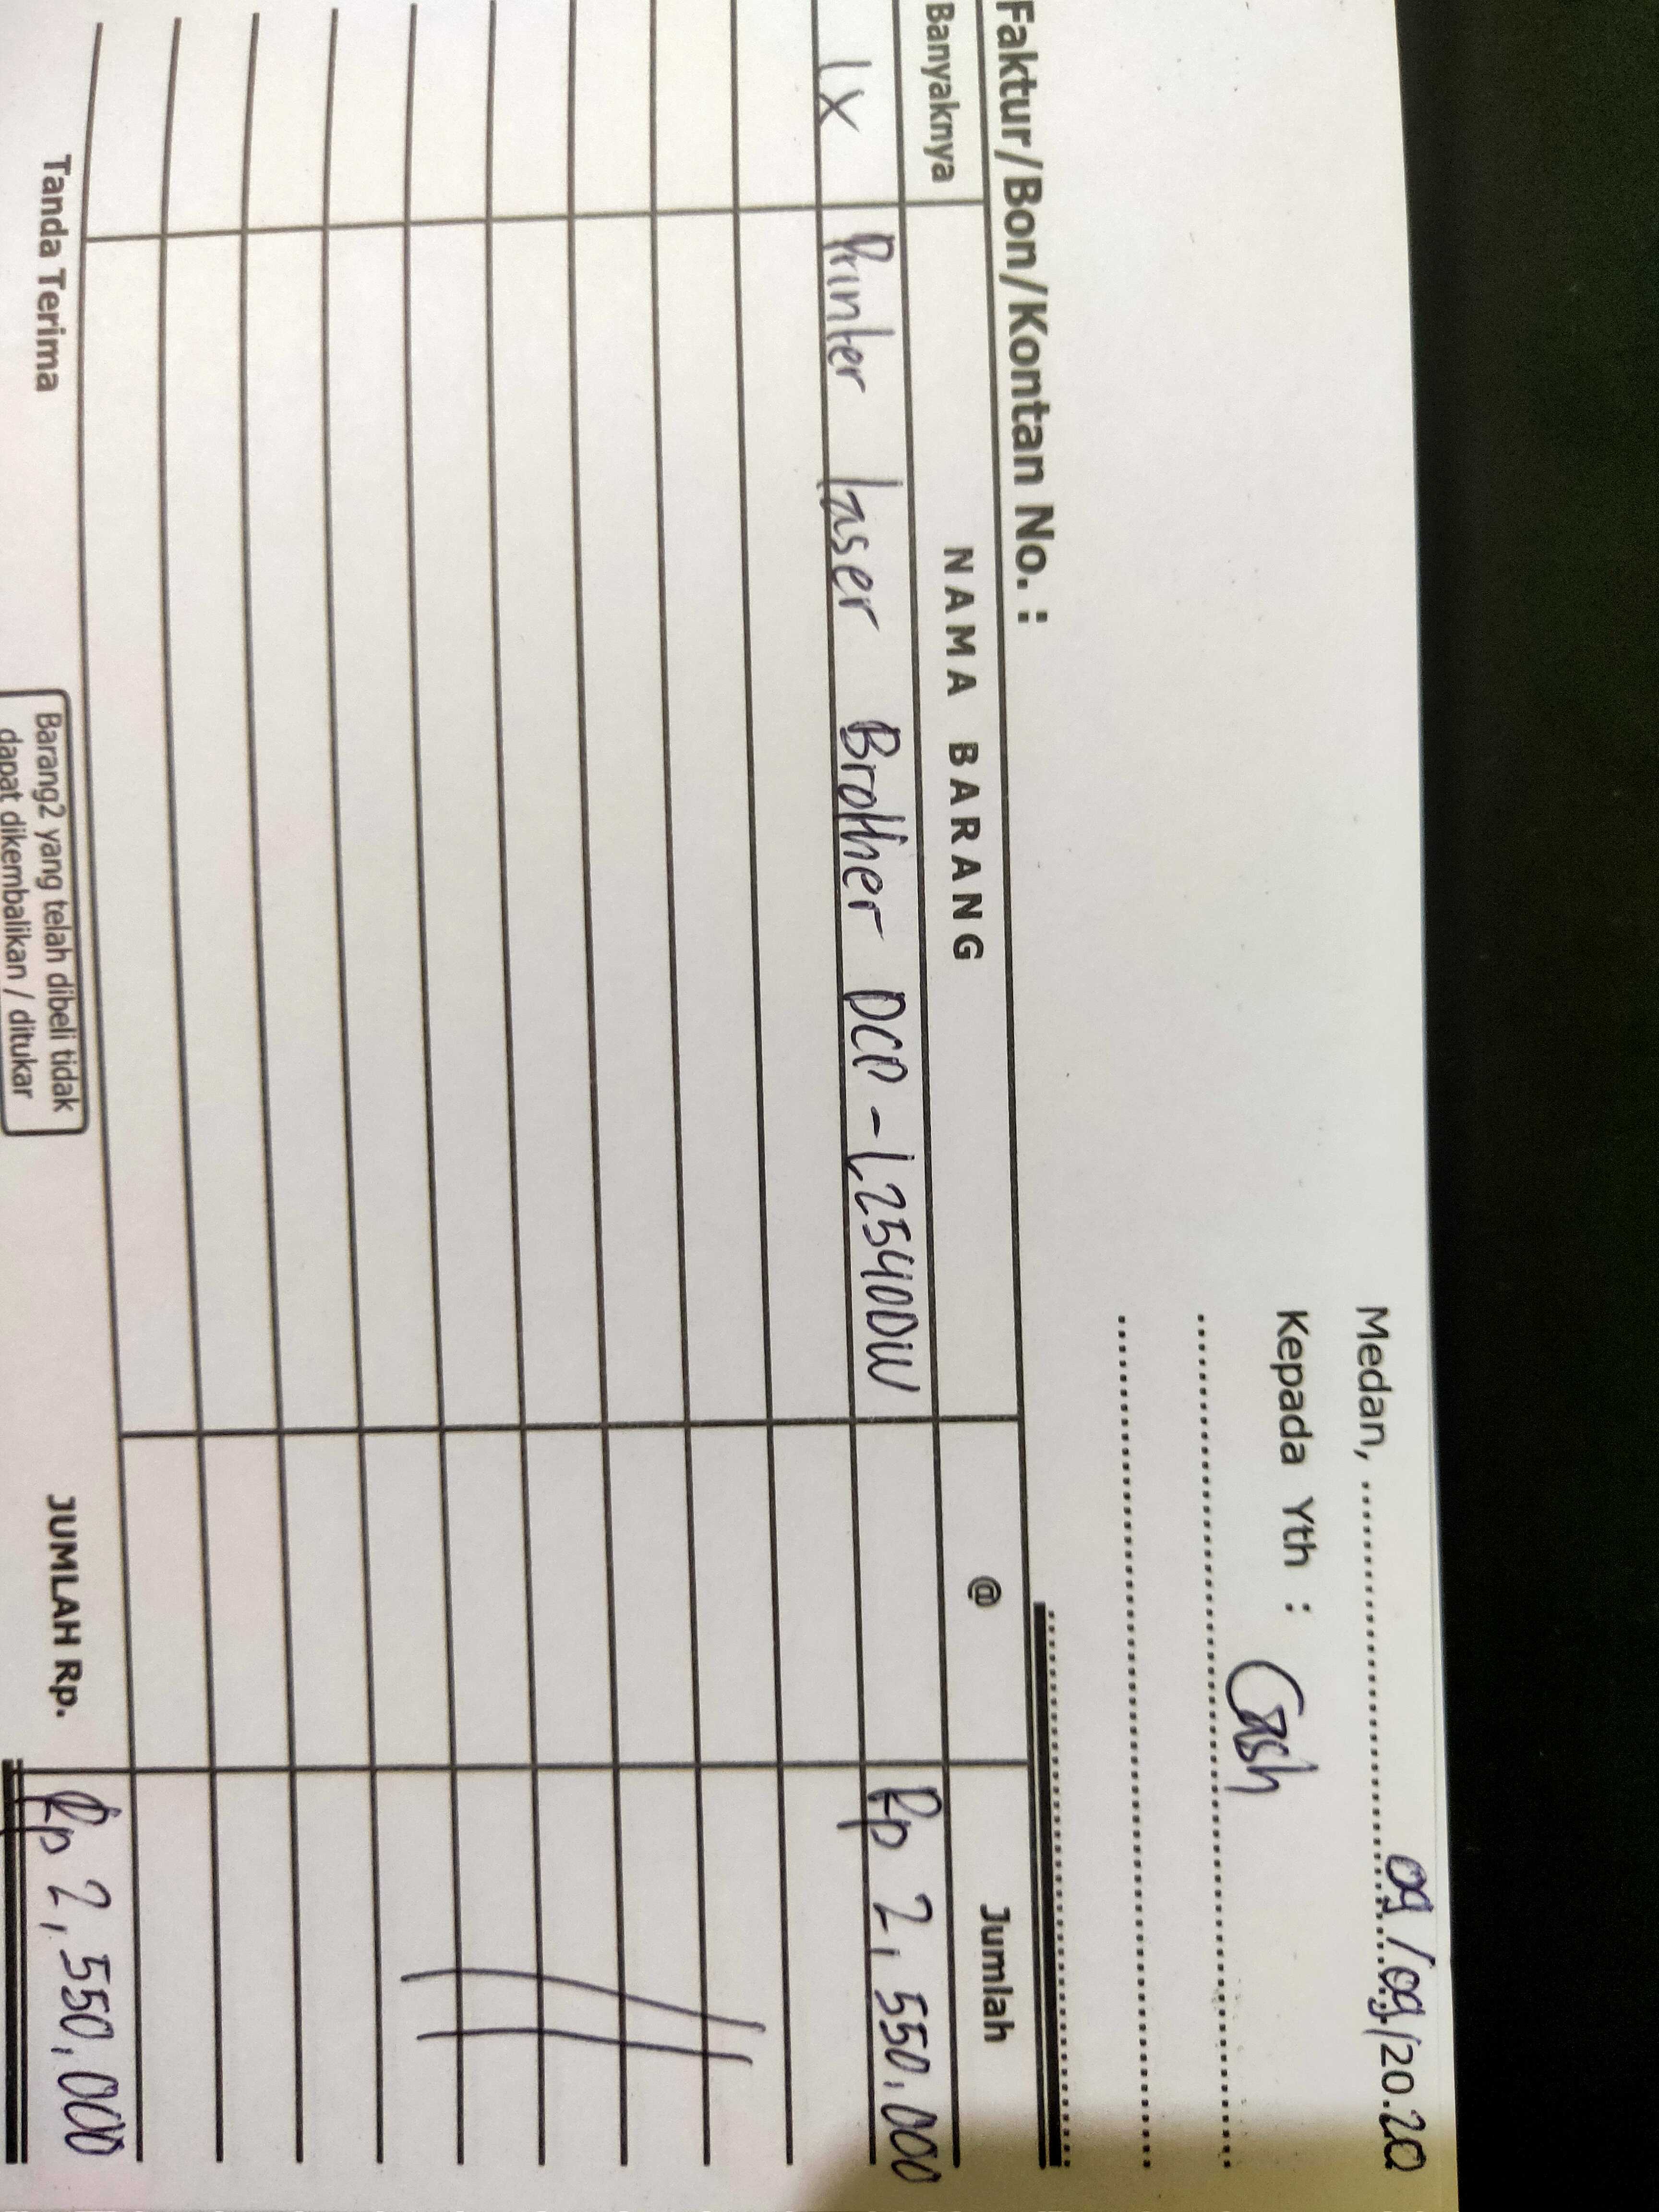 Medan, 09/09/2020
Kepada Yth : Cash
Faktur/Bon/Kontan No. :
Banyaknya NAMA BARANG @ Jumlah
1x Printer laser Brother DCP-L2540DW Rp 2,550,000
Tanda Terima JUMLAH Rp. Rp 2,550,000
Barang2 yang telah dibeli tidak
dapat dikembalikan / ditukar